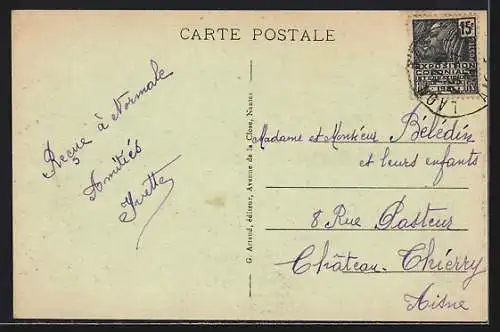 CARTE POSTALE
15c
EXPOSITION
COLONIALE
Reçue à Normale
Amitiés
Yvette
G. Artaud, éditeur, Avenue de la Close, Nantes
Madame et Monsieur Bélédin
et leurs enfants
8 Rue Pasteur
Château-Thierry
Aisne